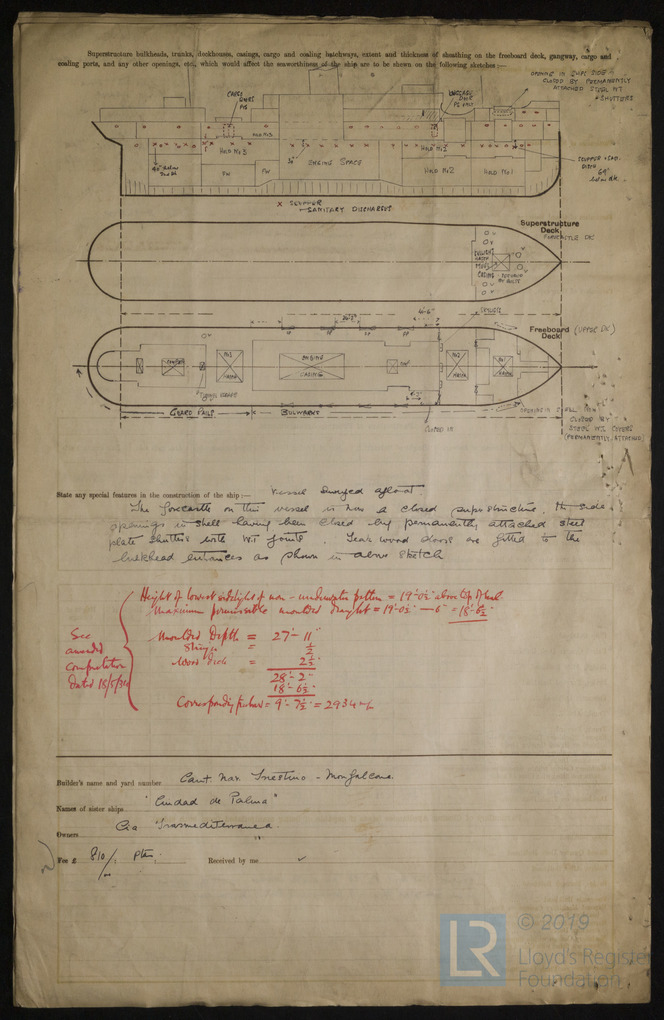 Superstructure bulkheads, trunks, deckhouses, casings, cargo and coaling hatchways, extent and thickness of sheathing on the freeboard deck, gangway, cargo and
coaling ports, and any other openings, etc., which would affect the seaworthiness of the ship are to be shewn on the following sketches :—
OPENING IN SHELL SIDE
CLOSED BY PERMANENTLY
ATTACHED STEEL WT
SHUTTERS
CARGO
DOORS
P&S
LUGGAGE
DOOR
HOLD No3
HOLD No3
ENGINE SPACE
HOLD No2
HOLD No2
HOLD No1
FW
FW
SCUPPER + SAN.
DISCH
69"
below dk.
X SCUPPER
SANITARY DISCHARGES
Superstructure
Deck
FORECASTLE DK
CASING
Freeboard (UPPER DK)
Deck
No3
HATCH
ENGINE
CASING
No2
HATCH
No1
HATCH
TONNAGE HATCH
GUARD RAILS
BULWARKS
CLOSED IN
OPENING IN SHELL
CLOSED BY
STEEL W.T. COVERS
(PERMANENTLY ATTACHED)
State any special features in the construction of the ship :— Vessel Surveyed afloat.
The forecastle on this vessel is now a closed superstructure, the side
openings in shell having been closed by permanently attached steel
plate shutters with WT joints. Teak wood doors are fitted to the
bulkhead entrances as shown in above sketch
Height of lowest sidelight of non-underwater pattern = 19'-0½" above top of keel
Maximum permissible moulded draught = 19'-0½" — 6" = 18'-6½"
See
amended
computation
dated 18/5/34
Moulded Depth = 27'-11"
String. = ½
Wood Deck = 2½"
28'-2"
18'-6½"
Corresponding freeboard = 9'-7½" = 2934 m/m
Builder's name and yard number Cant. Nav. Triestino - Monfalcone.
Names of sister ships "Ciudad de Palma"
Owners Cia Trasmediterranea
Fee £ 810/ Ptas.
Received by me
LR
© 2019
Lloyd's Register
Foundation